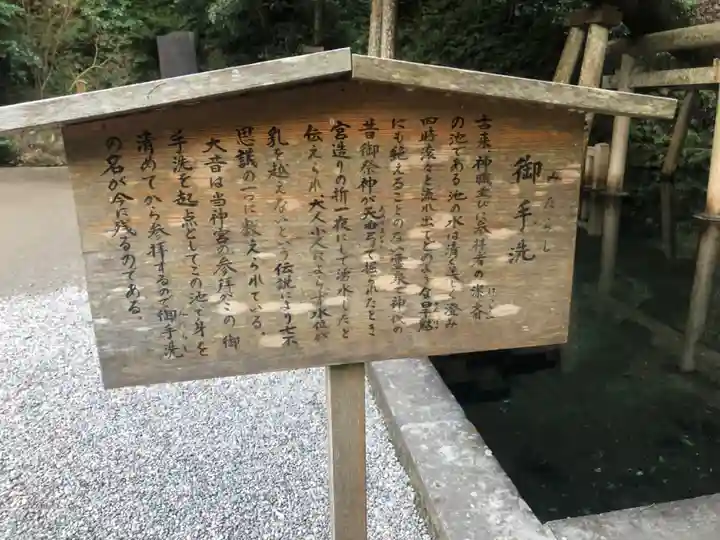 御手洗
みたらし
古来、神職並びに参拝者の潔斎
の池である池の水は清く美しく澄み
四時滾々と流れ出てどのような旱魃
にも絶えることのない霊泉で神代の
昔御祭神が天曲弓で掘られたとき
宮造りの折一夜にして湧水したと
伝えられ大人小人によらず水位が
乳を越えないという伝説により七不
思議の一つに数えられている。
大昔は当神宮の参拝がこの御
手洗を起点としてこの池で身を
清めてから参拝するので御手洗
の名が今に残るのである。